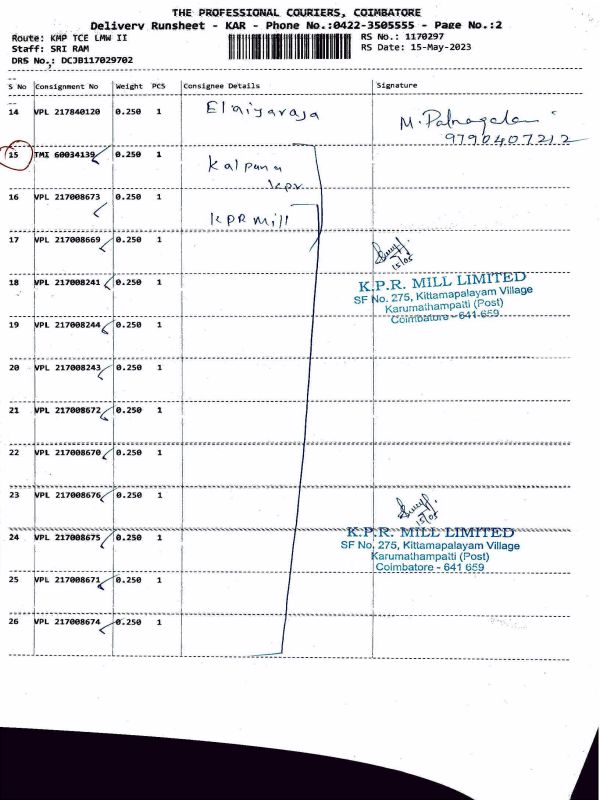 THE PROFESSIONAL COURIERS, COIMBATORE
Delivery Runsheet - KAR - Phone No.:0422-3505555 - Page No.:2
Route: KMP TCE LMW II
RS No.: 1170297
Staff: SRI RAM
RS Date: 15-May-2023
DRS No.: DCJB117029702
S No Consignment No Weight PCS Consignee Details Signature
14 VPL 217840120 0.250 1 Elaiyaraja
9790407212
15 TMI 60034139 0.250 1 Kalpana
kpr
16 VPL 217008673 0.250 1 KPR Mill
17 VPL 217008669 0.250 1
15/05
18 VPL 217008241 0.250 1
K.P.R. MILL LIMITED
SF No. 275, Kittamapalayam Village
Karumathampatti (Post)
Coimbatore - 641 659.
19 VPL 217008244 0.250 1
20 VPL 217008243 0.250 1
21 VPL 217008672 0.250 1
22 VPL 217008670 0.250 1
23 VPL 217008676 0.250 1
15/05
24 VPL 217008675 0.250 1
K.P.R. MILL LIMITED
SF No. 275, Kittamapalayam Village
Karumathampatti (Post)
Coimbatore - 641 659
25 VPL 217008671 0.250 1
26 VPL 217008674 0.250 1